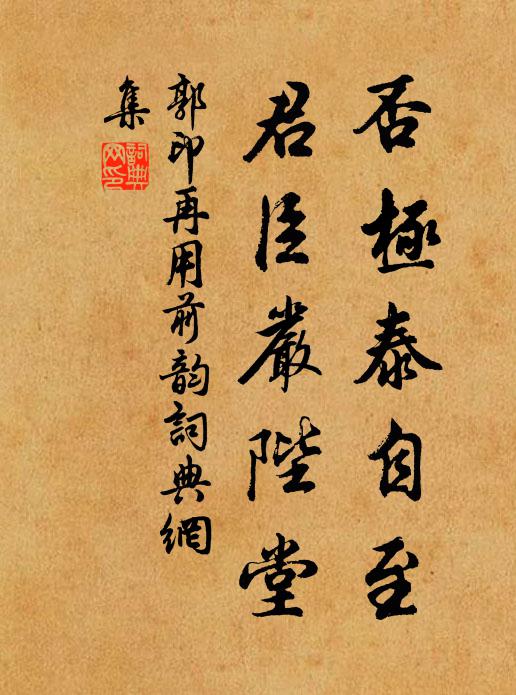 否極泰自至
君臣嚴陛堂
郭印再用前韵詞典網
集
詞典網印